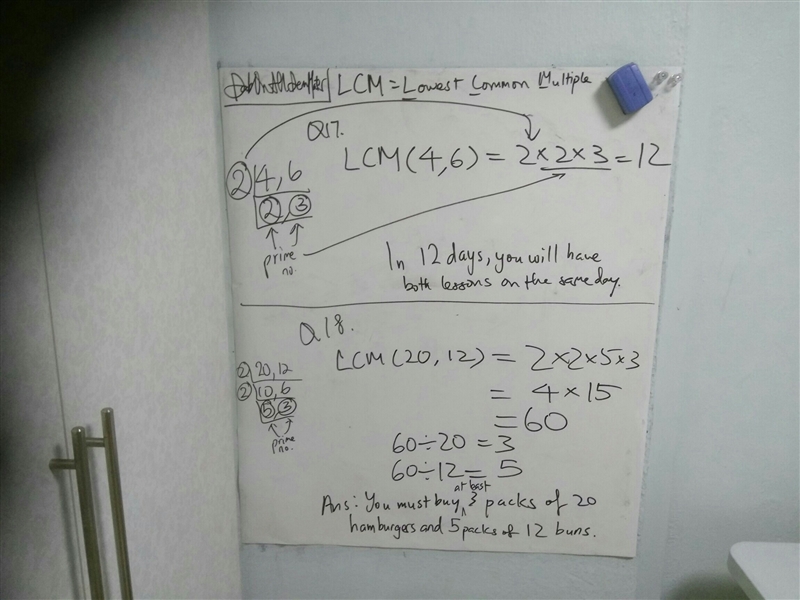 LCM = Lowest Common Multiple
Q17.
2 4, 6
2, 3
prime
no.
LCM(4,6) = 2×2×3 = 12
In 12 days, you will have
both lessons on the same day.
Q18.
2 20, 12
2 10, 6
5, 3
prime
no.
LCM(20,12) = 2×2×5×3
= 4×15
= 60
60÷20 = 3
60÷12 = 5
at least
Ans: You must buy 3 packs of 20
hamburgers and 5 packs of 12 buns.